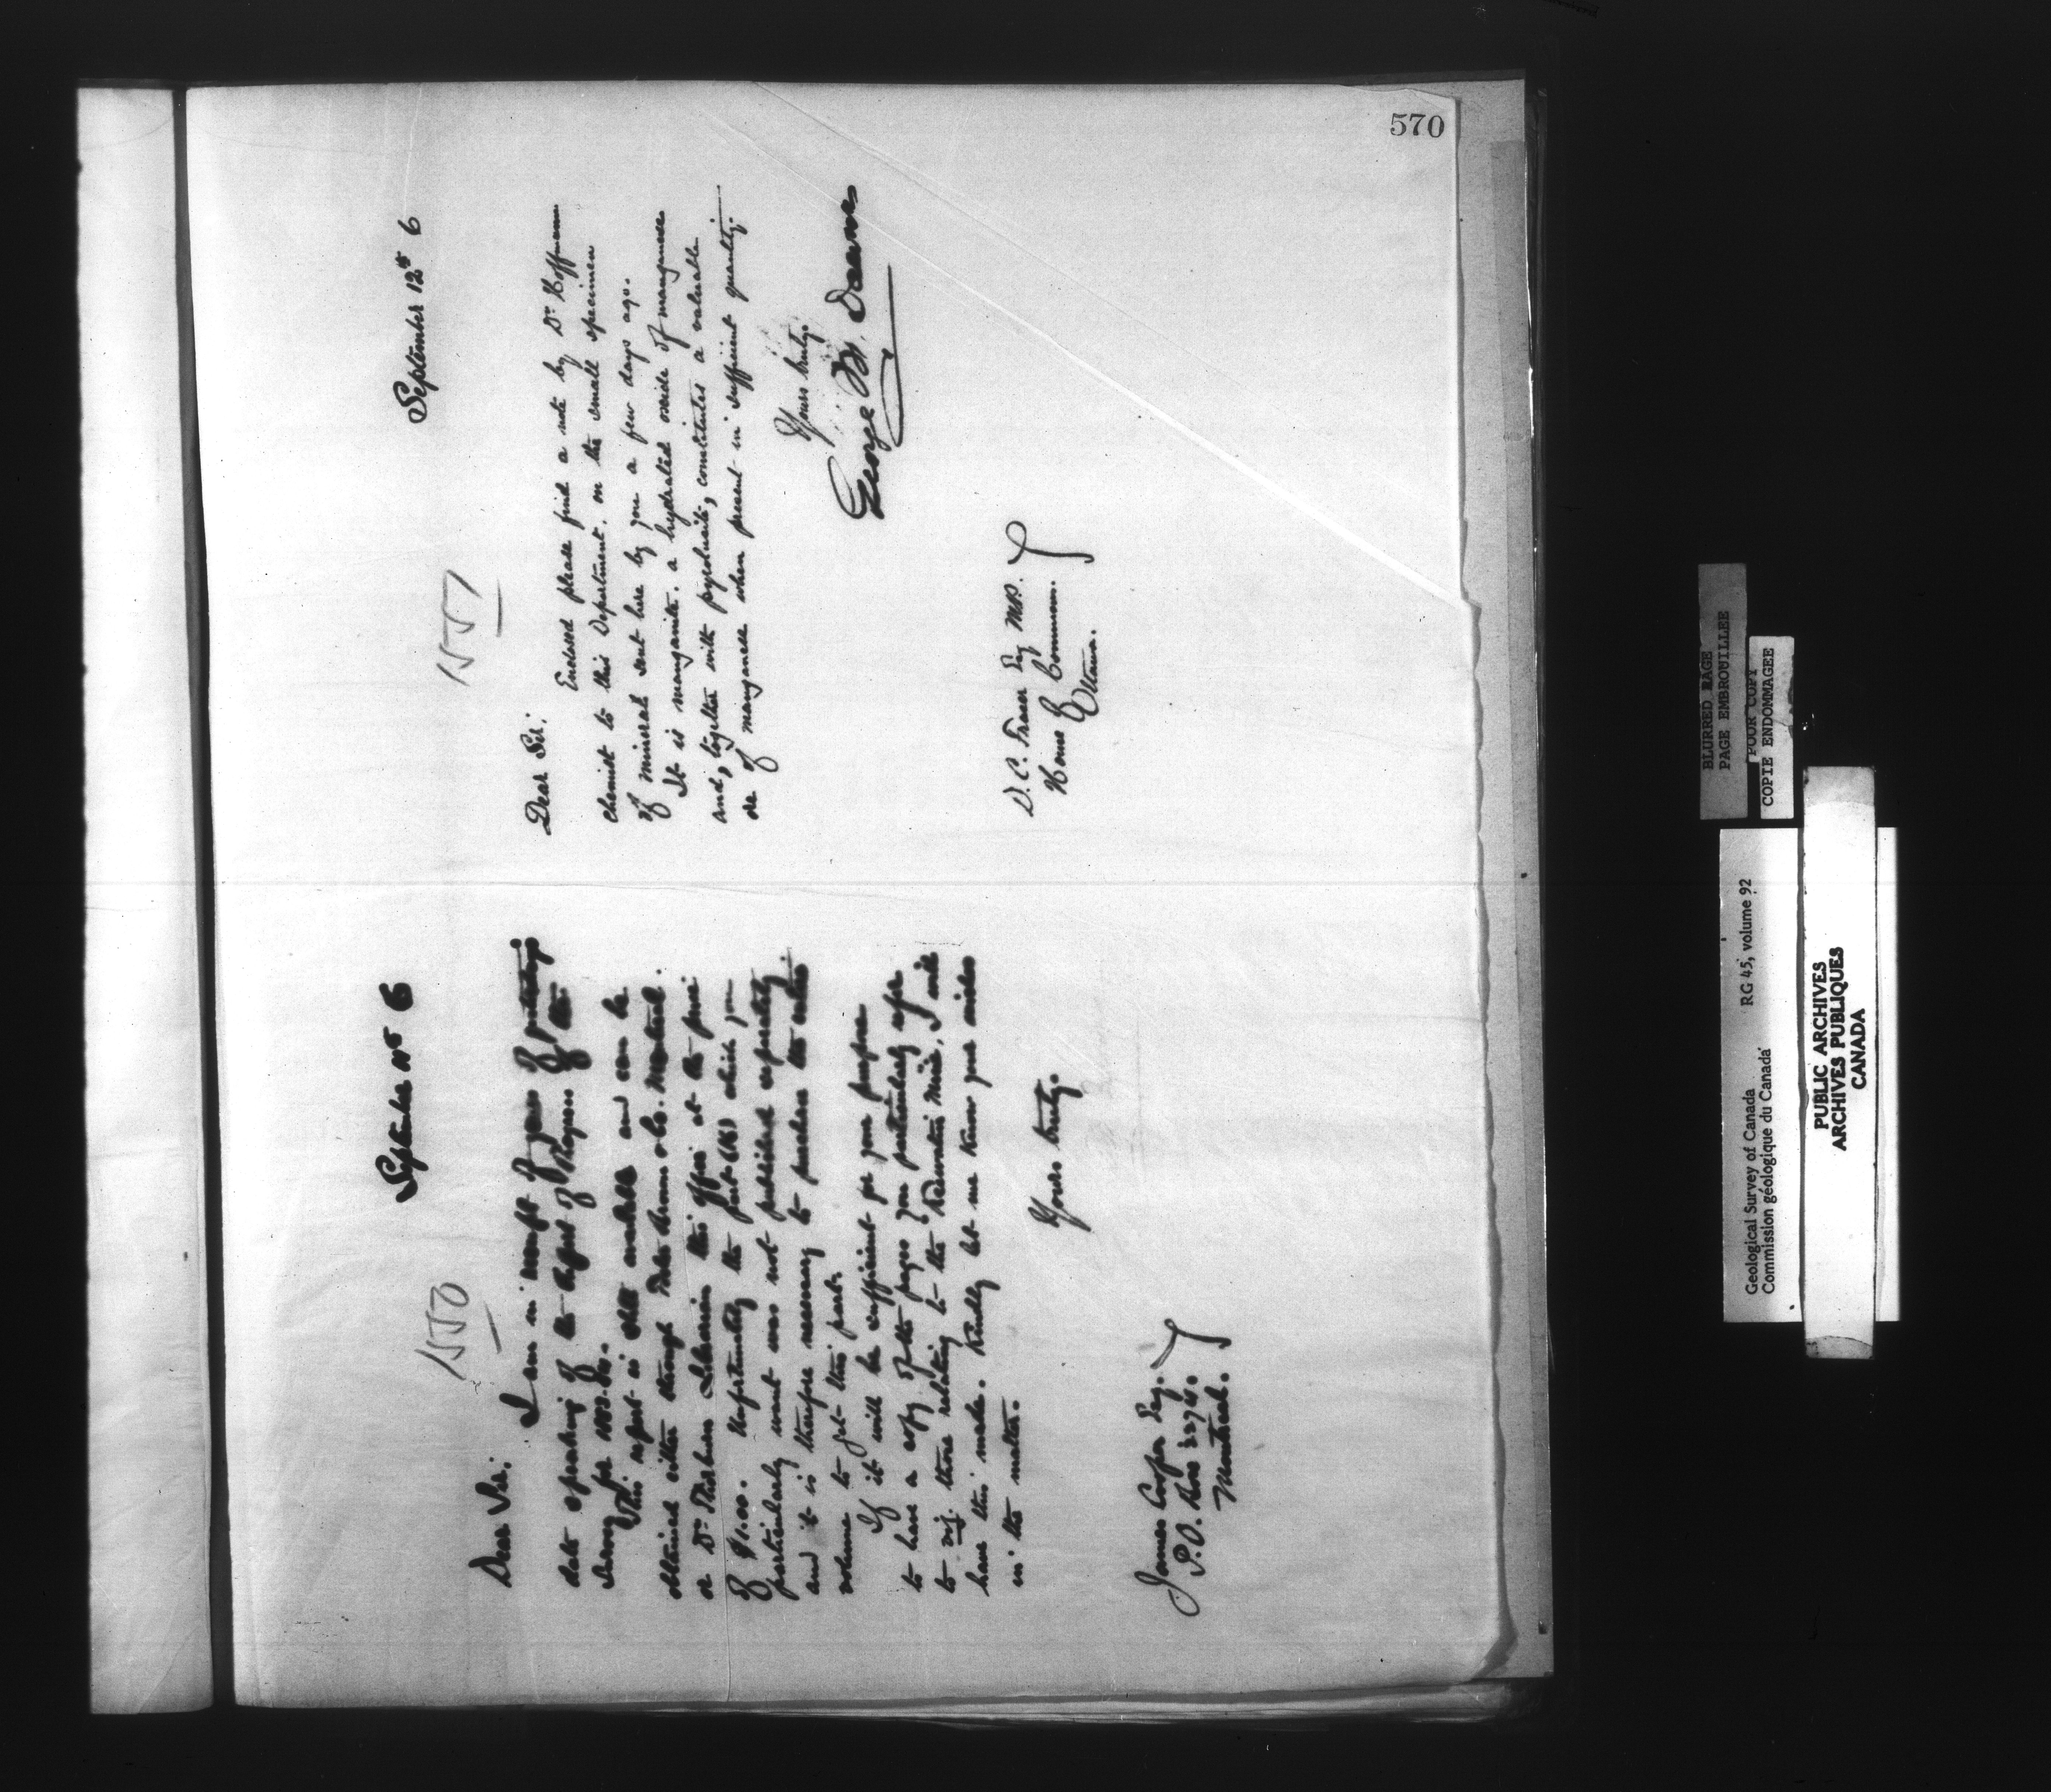 570
September 11th 6
1550
Dear Sir:
I am in receipt of yours of yesterday's
date speaking of the Report of Progress of the
Survey for 1883-84.
This report is still available and can be
obtained either through Dawson Bros & Co. Montreal.
or Dr. Thorburn Librarian this office at the price
of $1.00. Unfortunately the part (K) which you
particularly want was not published separately
and it is therefore necessary to purchase the entire
volume to get this part.
If it will be sufficient for your purpose
to have a copy of the pages you particularly refer
to viz. those relating to the Mine, I will
have this made. Kindly let me know your wishes
in the matter.
Yours truly.
James Cooper Esq.
P.O. Box
Montreal.
September 12th 6
1551
Dear Sir:
Enclosed please find a note by Dr. Hoffmann
chemist to this Department. on the small specimen
of mineral sent here by you a few days ago.
It is manganite. a hydrated oxide of manganese
and, together with pyrolusite, constitutes a valuable
ore of manganese when present in sufficient quantity.
Yours truly.
George M. Dawson
D. C. Fraser Esq M.P.
House of Commons.
Ottawa.
BLURRED PAGE
PAGE EMBROUILLEE
POOR COPY
COPIE ENDOMMAGEE
Geological Survey of Canada RG 45, volume 92
Commission géologique du Canada
PUBLIC ARCHIVES
ARCHIVES PUBLIQUES
CANADA